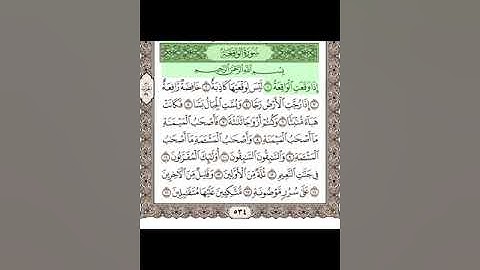 سُورَةُ الوَاقِعَةِ
بِسْمِ اللَّهِ الرَّحْمَٰنِ الرَّحِيمِ
إِذَا وَقَعَتِ الْوَاقِعَةُ ١ لَيْسَ لِوَقْعَتِهَا كَاذِبَةٌ ٢ خَافِضَةٌ رَّافِعَةٌ
٣ إِذَا رُجَّتِ الْأَرْضُ رَجًّا ٤ وَبُسَّتِ الْجِبَالُ بَسًّا ٥ فَكَانَتْ
هَبَاءً مُّنۢبَثًّا ٦ وَكُنتُمْ أَزْوَاجًا ثَلَاثَةً ٧ فَأَصْحَابُ الْمَيْمَنَةِ
مَا أَصْحَابُ الْمَيْمَنَةِ ٨ وَأَصْحَابُ الْمَشْـَٔمَةِ مَا أَصْحَابُ
الْمَشْـَٔمَةِ ٩ وَالسَّابِقُونَ السَّابِقُونَ ١٠ أُولَٰئِكَ الْمُقَرَّبُونَ ١١
فِي جَنَّاتِ النَّعِيمِ ١٢ ثُلَّةٌ مِّنَ الْأَوَّلِينَ ١٣ وَقَلِيلٌ مِّنَ الْآخِرِينَ
١٤ عَلَىٰ سُرُرٍ مَّوْضُونَةٍ ١٥ مُّتَّكِـِٔينَ عَلَيْهَا مُتَقَابِلِينَ ١٦
٥٣٤